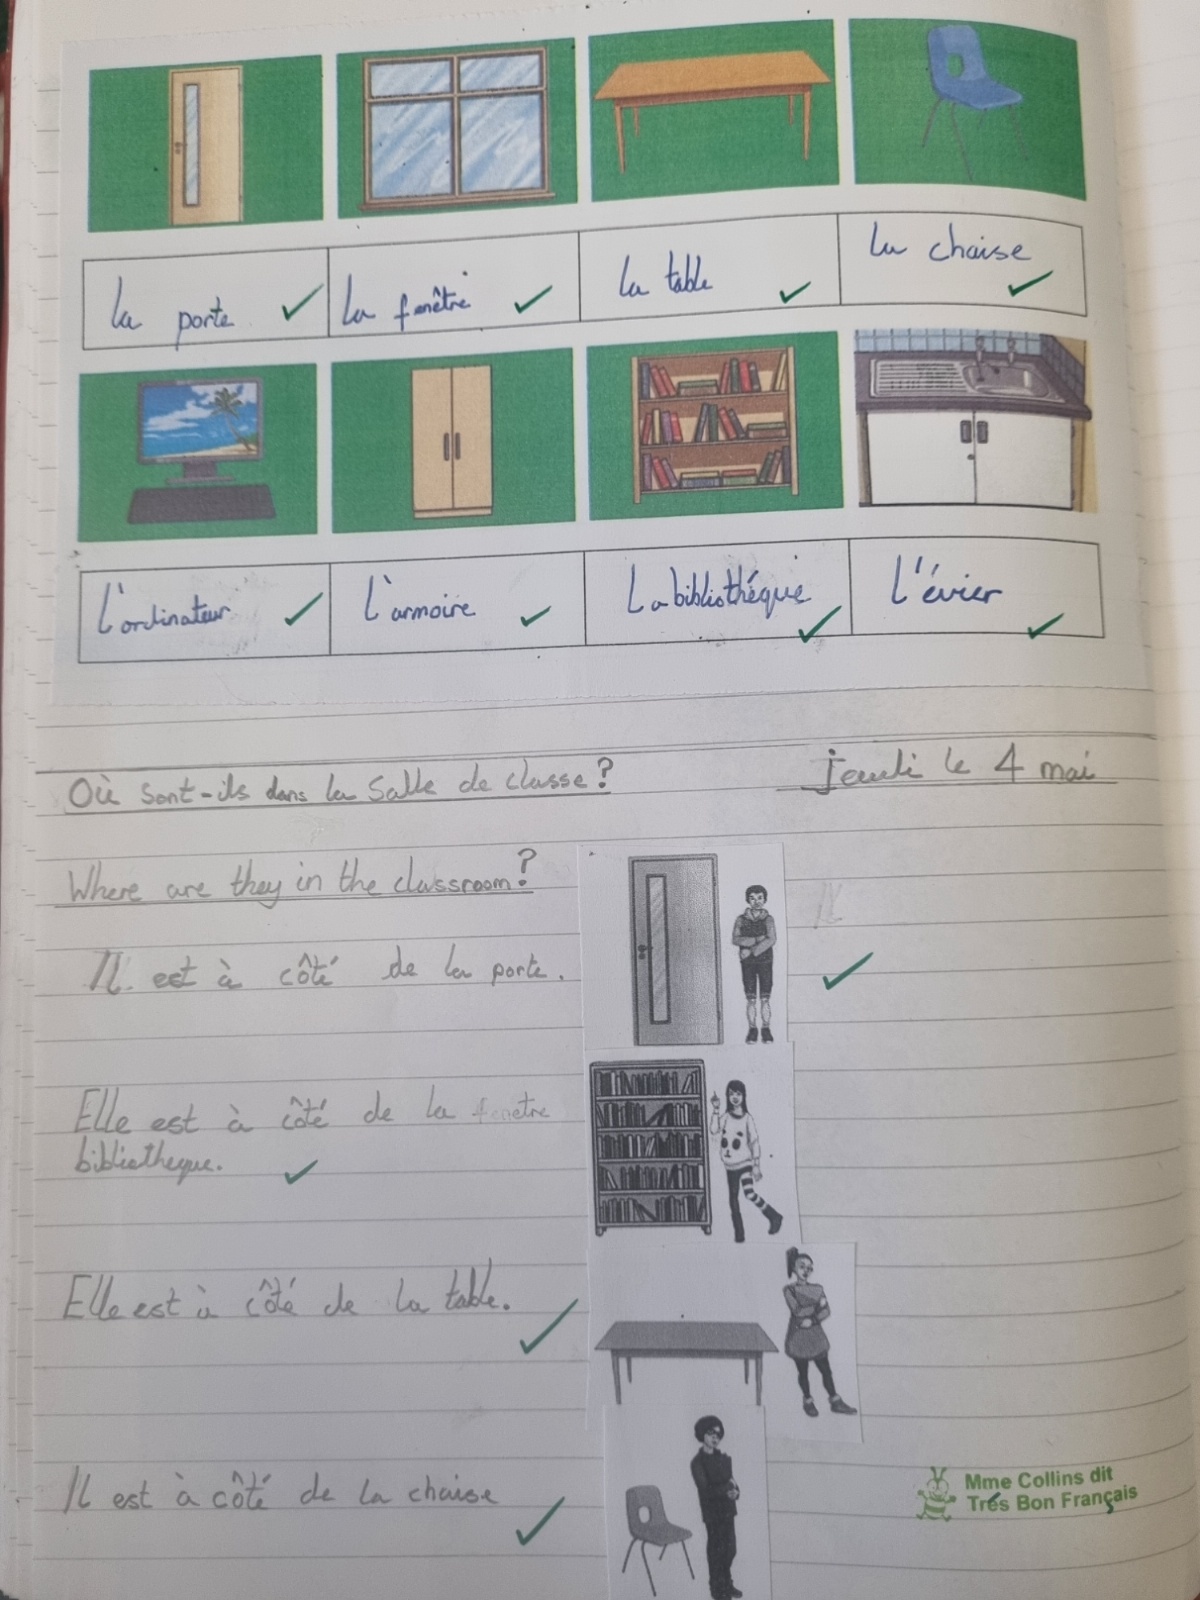 la porte
la fenêtre
la table
la chaise
l'ordinateur
l'armoire
La bibliothéque
l'évier
Où sont-ils dans la Salle de classe?
jeudi le 4 mai
Where are they in the classroom?
Il est à côté de la porte.
Elle est à côté de la fenetre
bibliotheque.
Elle est à côté de la table.
Il est à côté de la chaise
Mme Collins dit
Trés Bon Français